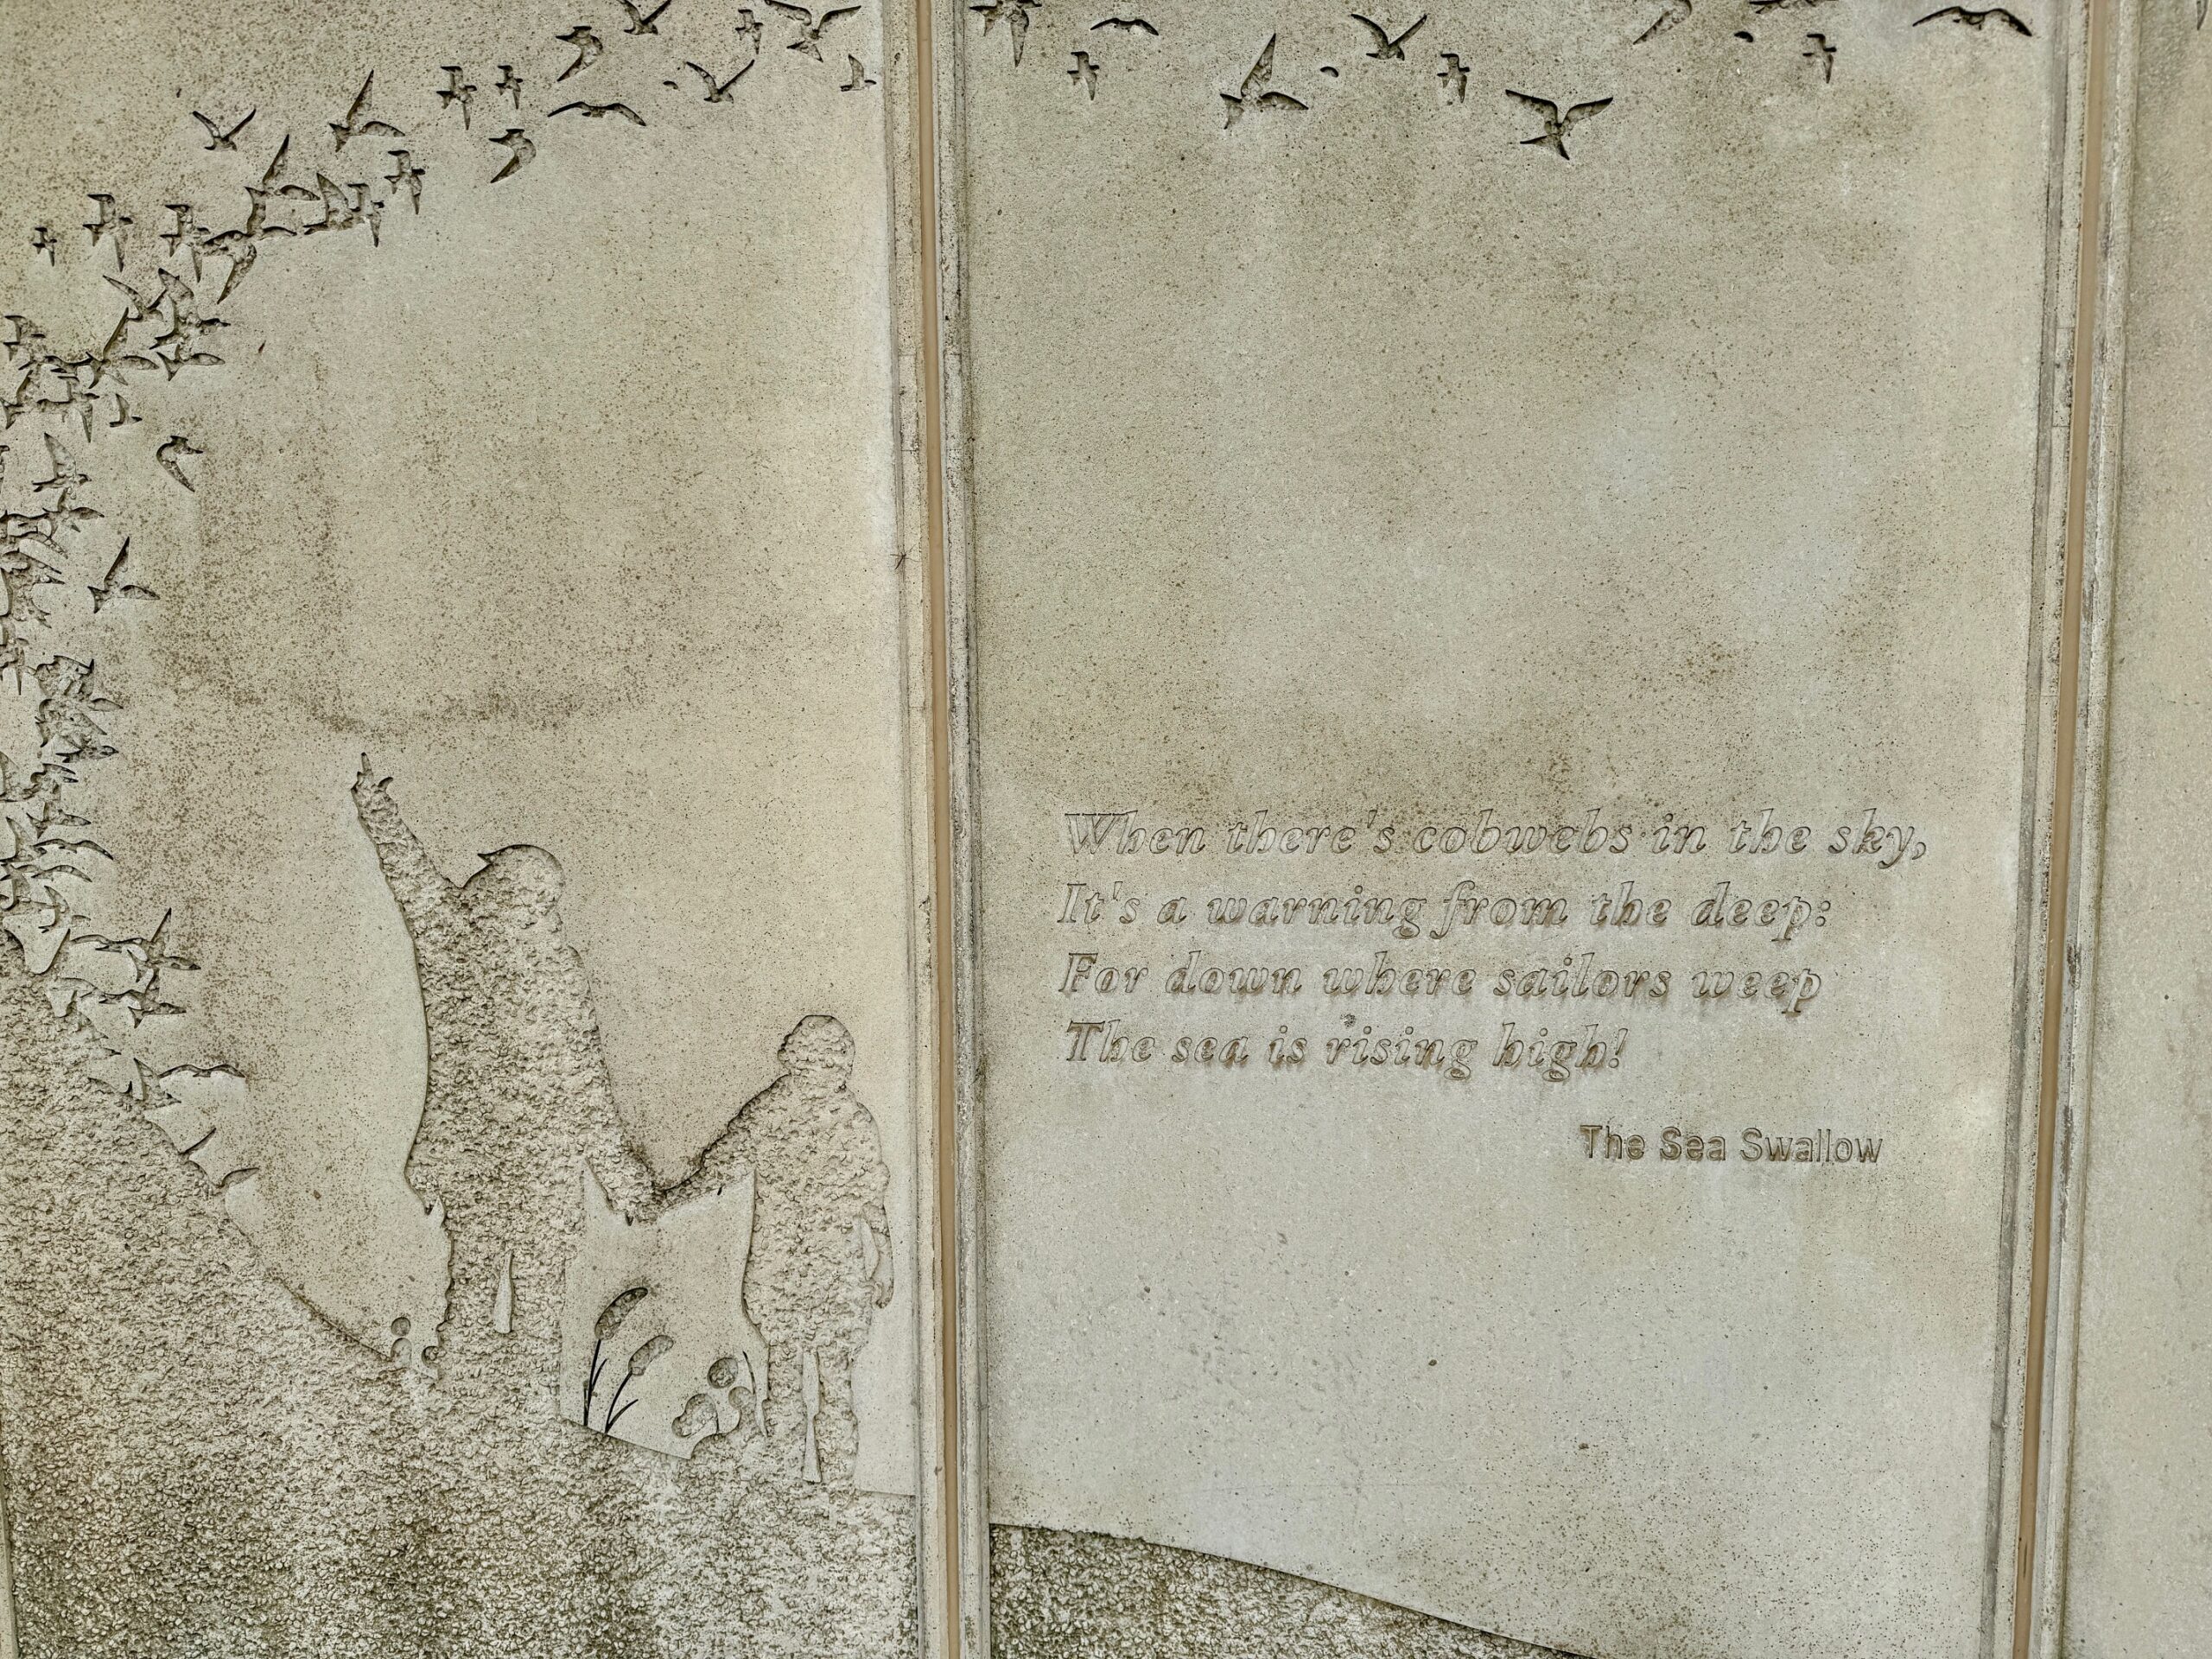 When there's cobwebs in the sky,
It's a warning from the deep:
For down where sailors weep
The sea is rising high!
The Sea Swallow